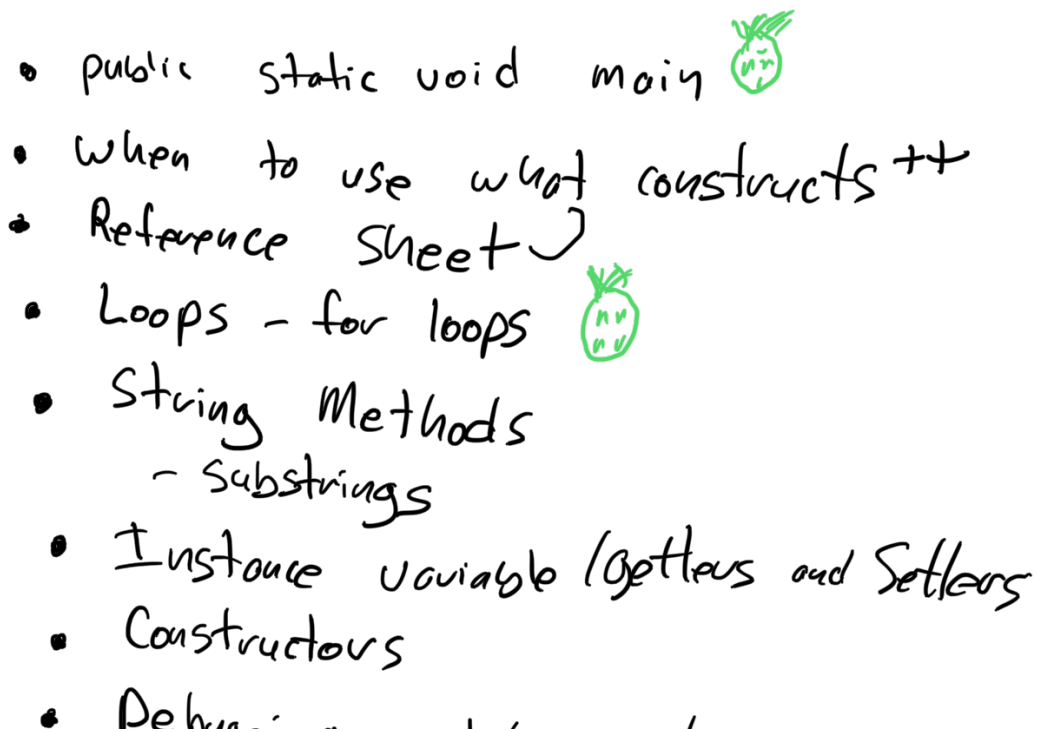 • public static void main
• when to use what constructs ++
• Reference sheet
• Loops - for loops
• String Methods
- substrings
• Instance variable /Getters and Setters
• Constructors
•